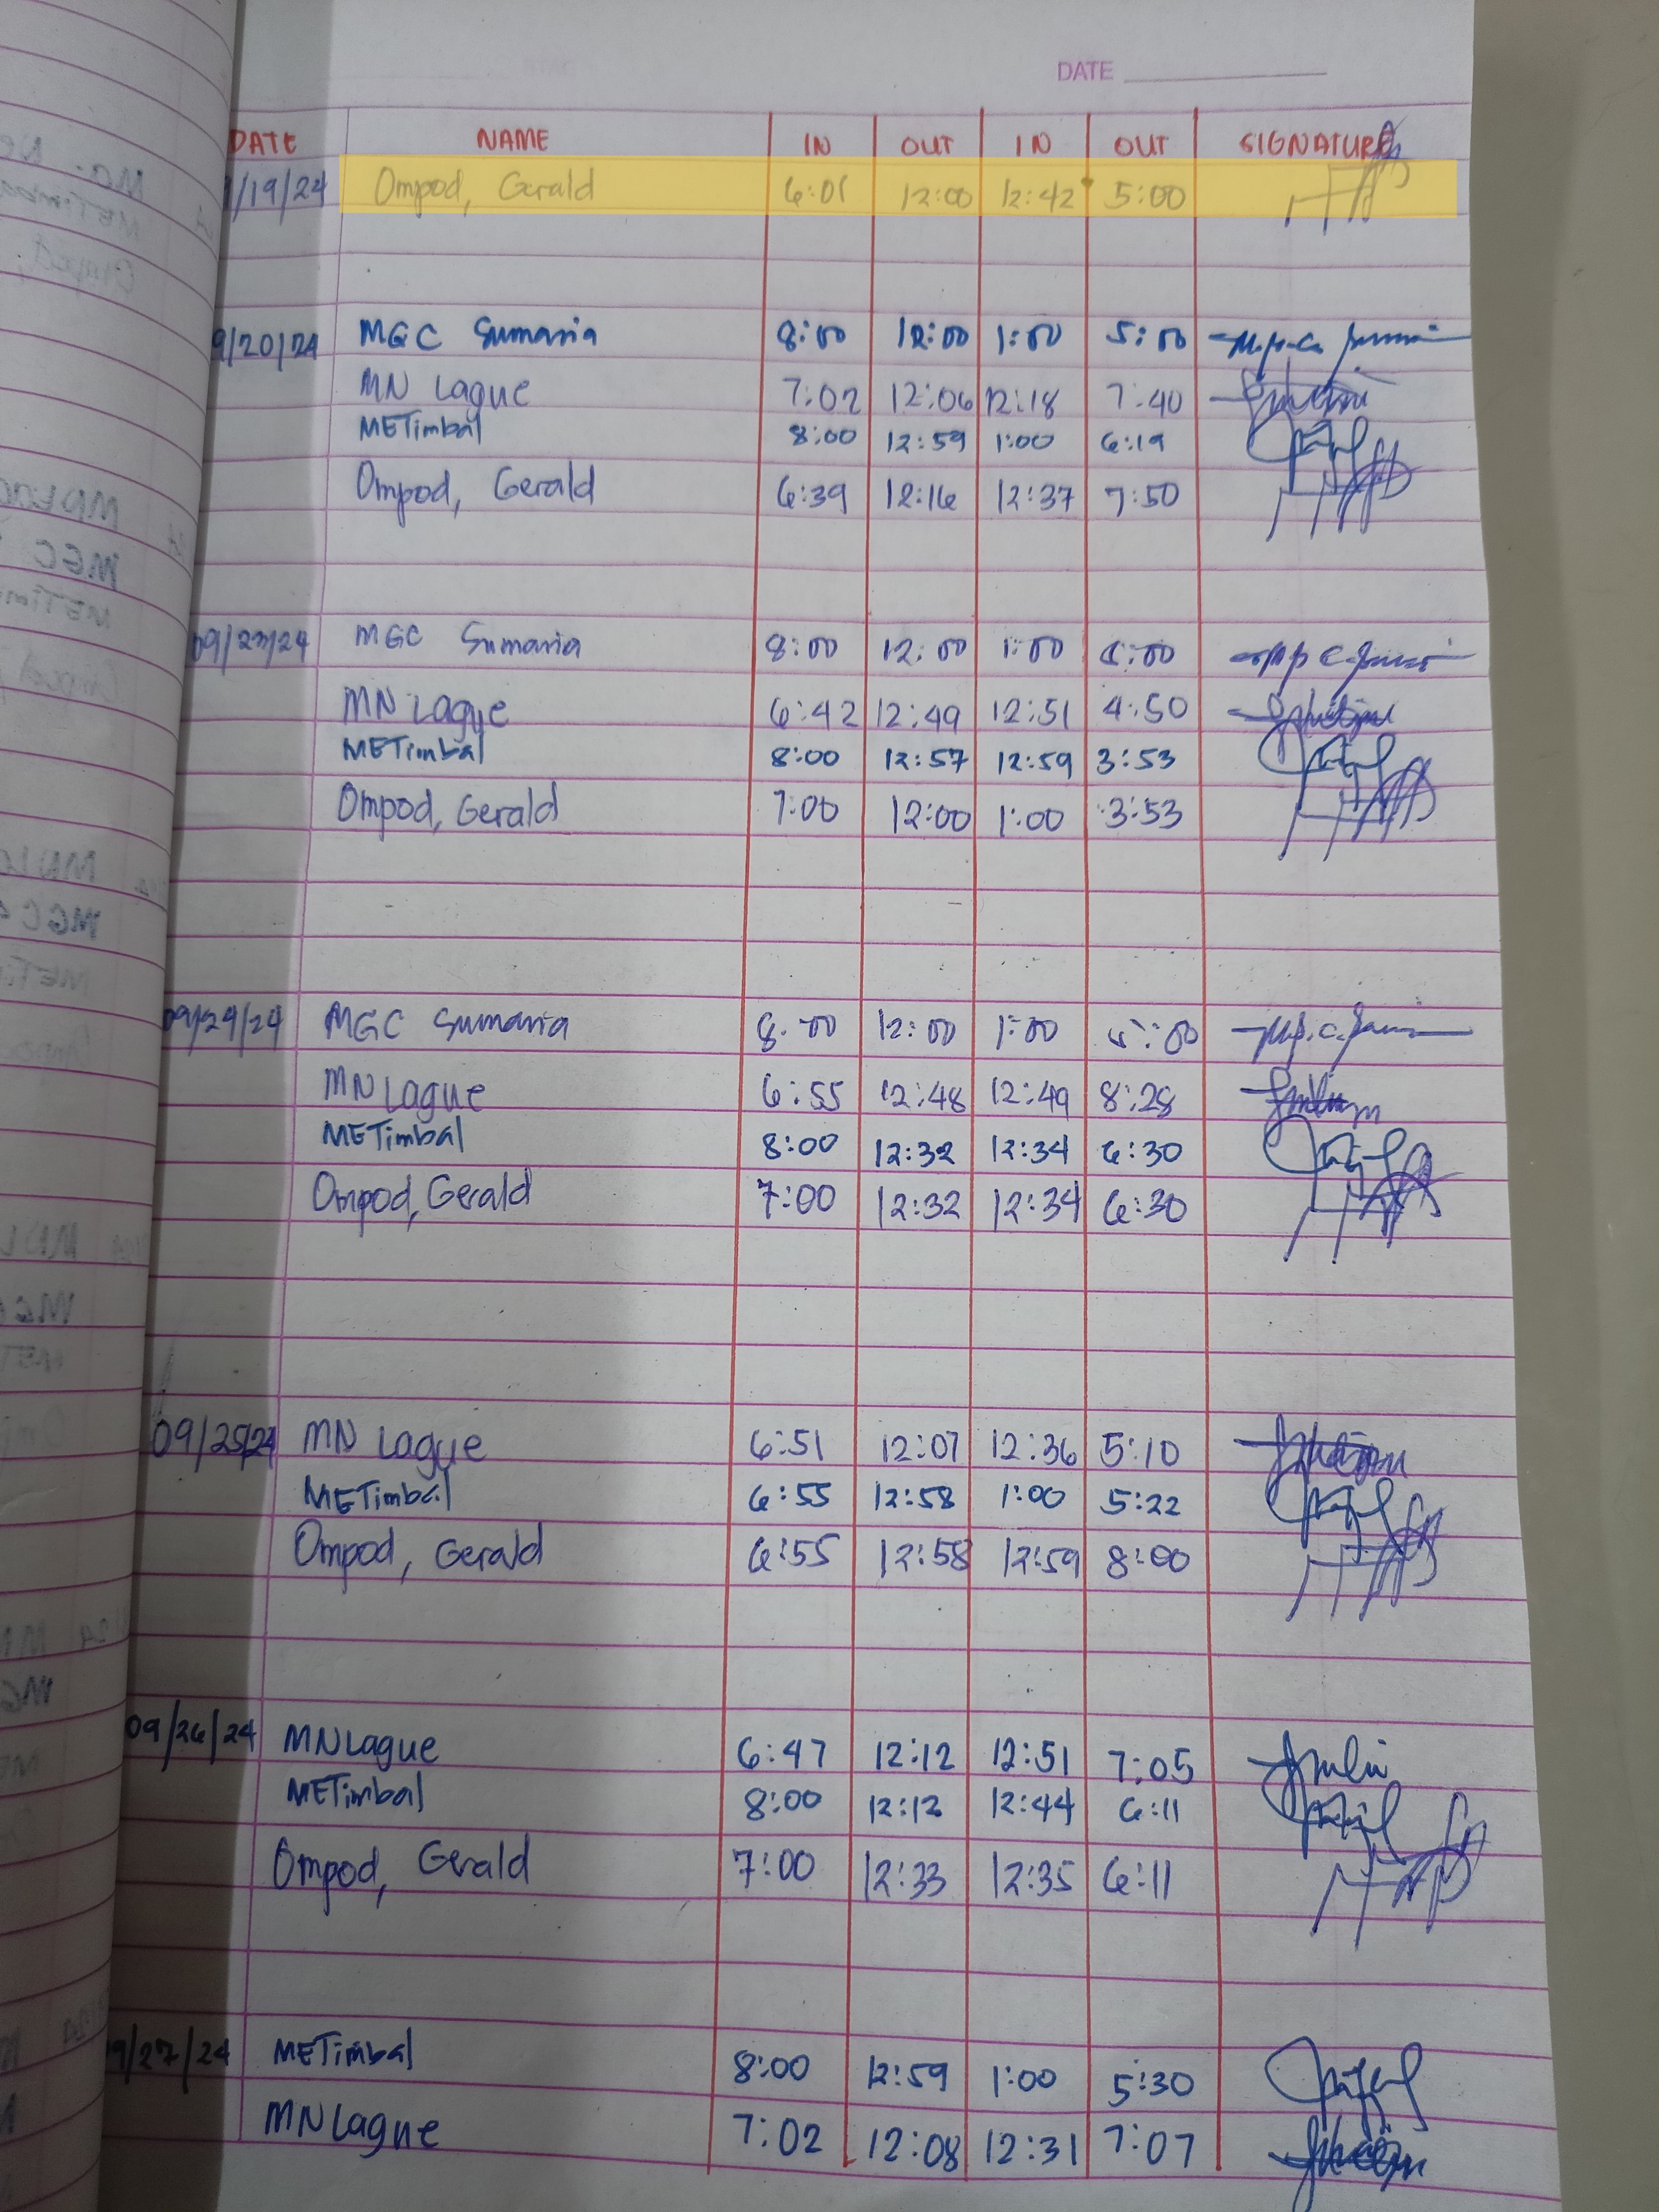 DATE
DATE NAME IN OUT IN OUT SIGNATURE
9/19/24 Ompod, Gerald 6:01 12:00 12:42 5:00
9/20/24 MGC Sumaria 8:00 12:00 1:00 5:00
MN Lague 7:02 12:06 12:18 7:40
METimbal 8:00 12:59 1:00 6:19
Ompod, Gerald 6:39 12:16 12:37 7:50
09/23/24 MGC Sumaria 8:00 12:00 1:00 5:00
MN Lague 6:42 12:49 12:51 4:50
METimbal 8:00 12:57 12:59 3:53
Ompod, Gerald 7:00 12:00 1:00 3:53
09/24/24 MGC Sumaria 8:00 12:00 1:00 5:00
MN Lague 6:55 12:48 12:49 8:28
METimbal 8:00 12:32 12:34 6:30
Ompod, Gerald 7:00 12:32 12:34 6:30
09/25/24 MN Lague 6:51 12:07 12:36 5:10
METimbal 6:55 12:58 1:00 5:22
Ompod, Gerald 6:55 12:58 12:59 8:00
09/26/24 MN Lague 6:47 12:12 12:51 7:05
METimbal 8:00 12:12 12:44 6:11
Ompod, Gerald 7:00 12:33 12:35 6:11
9/27/24 METimbal 8:00 12:59 1:00 5:30
MN Lague 7:02 12:08 12:31 7:07